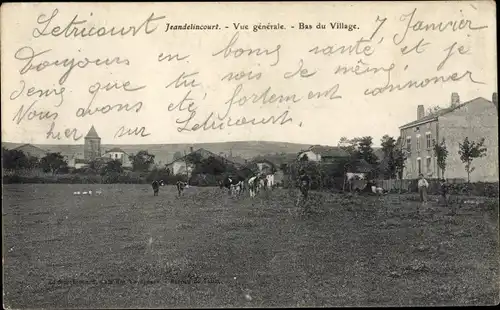 Jeandelincourt. - Vue générale. - Bas du Village.
Letricourt 7 Janvier
Toujours en bonne santé, et je
dem que tu sois de même,
Vous avons été fortement canonner
hier sur Letricourt.